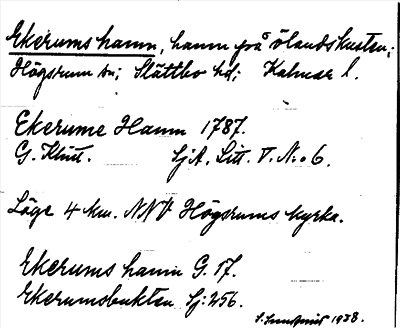 Ekerums hamn, hamn på ölandskusten;
Högsrum sn; Slättbo hd; Kalmar l.
Ekerums Hamn 1787.
G. Klint. SjA. Litt. V. No 6.
Läge 4 km. NNV Högsrums kyrka.
Ekerums hamn G. 17.
Ekerumsbukten Sj: 256.
1938.